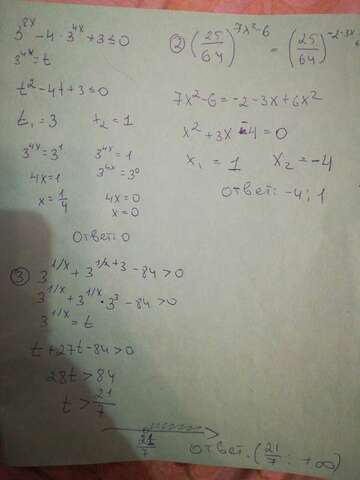 3^8x - 4 · 3^4x + 3 ≤ 0
3^4x = t
t² - 4t + 3 ≤ 0
t₁ = 3 t₂ = 1
3^4x = 3¹ 3^4x = 1
4x = 1 3^4x = 3⁰
x = 1/4 4x = 0
x = 0
Ответ: 0
② (25/64)^7x²-6 = (25/64)^-2-3x+6x²
7x² - 6 = -2 - 3x + 6x²
x² + 3x - 4 = 0
x₁ = 1 x₂ = -4
Ответ: -4; 1
③ 3^1/x + 3^1/x+3 - 84 > 0
3^1/x + 3^1/x · 3³ - 84 > 0
3^1/x = t
t + 27t - 84 > 0
28t > 84
t > 21/7
21/7
Ответ. (21/7; +∞)